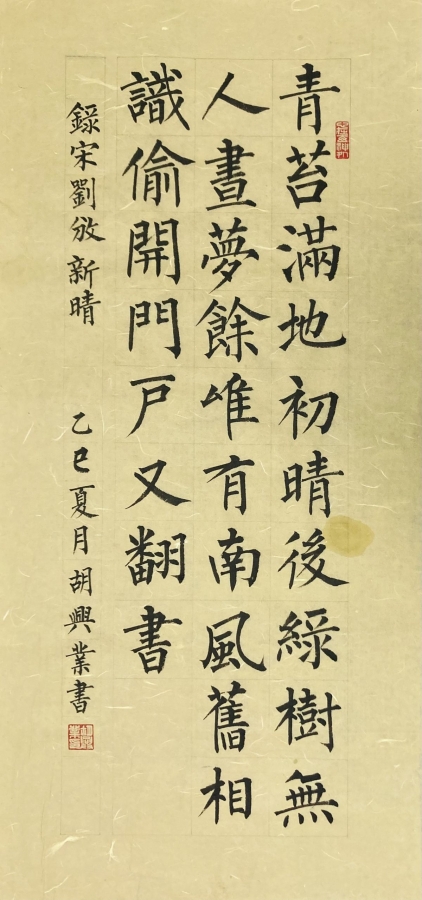 青苔滿地初晴後綠樹無
人晝夢餘唯有南風舊相
識偷開門戶又翻書
錄宋劉攽新晴 乙巳夏月胡興業書